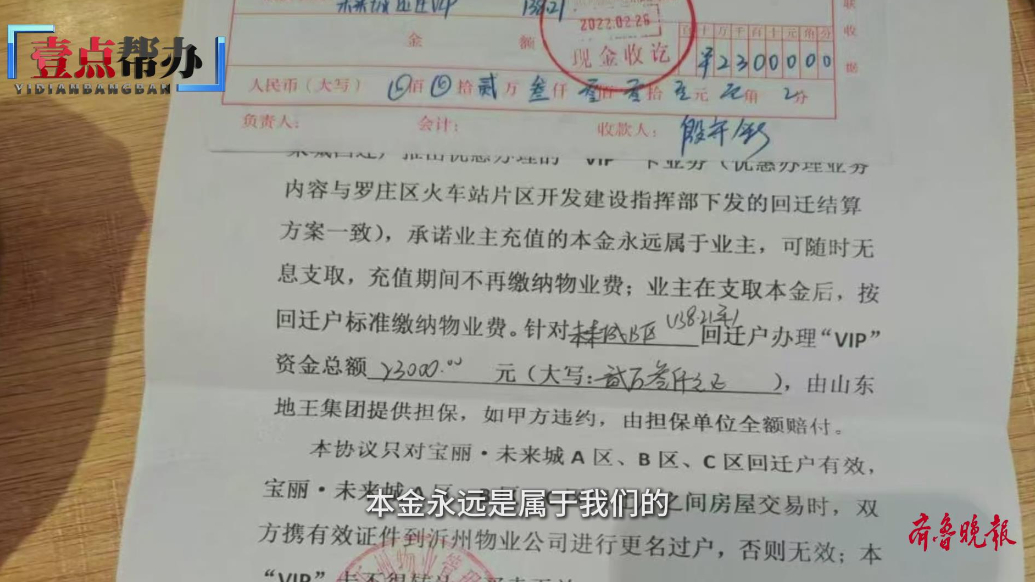 壹点帮办
YIDIANBANGBAN
未来城B区VIP
2022.02.26
现金收讫
金 额
百十万千百十元角分
¥2300000
收
据
人民币（大写） 佰 拾贰万叁仟 佰 拾 元 角 分
负责人： 会计： 收款人：
来城回迁户推出优惠办理的“VIP”卡业务（优惠办理业务
内容与罗庄区火车站片区开发建设指挥部下发的回迁结算
方案一致），承诺业主充值的本金永远属于业主，可随时无
息支取，充值期间不再缴纳物业费；业主在支取本金后，按
回迁户标准缴纳物业费。针对未来城B区 回迁户办理“VIP”
资金总额 23000.00 元（大写：贰万叁仟元 ），由山东
地王集团提供担保，如甲方违约，由担保单位全额赔付。
本协议只对宝丽·未来城A区、B区、C区回迁户有效，
宝丽·未来城A区、B区 之间房屋交易时，双
本金永远是属于我们的
方携有效证件到沂州物业公司进行更名过户，否则无效；本
齐鲁晚报
州物业管
“VIP”卡不得